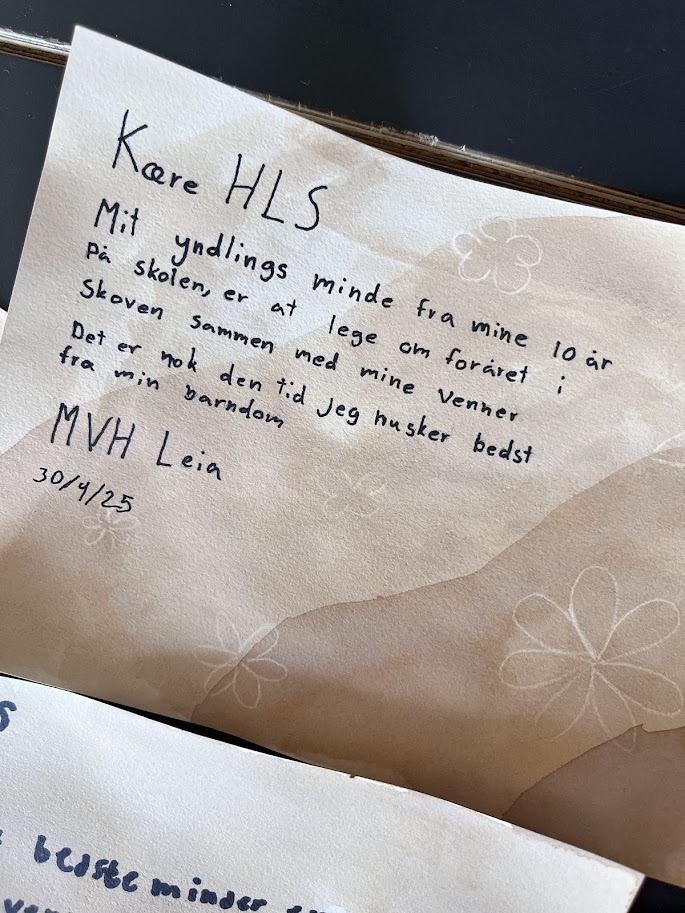 Kære HLS
Mit yndlings minde fra mine 10 år
på skolen, er at lege om foråret i
Skoven sammen med mine venner
Det er nok den tid jeg husker bedst
fra min barndom
MVH Leia
30/4/25
bedste minder